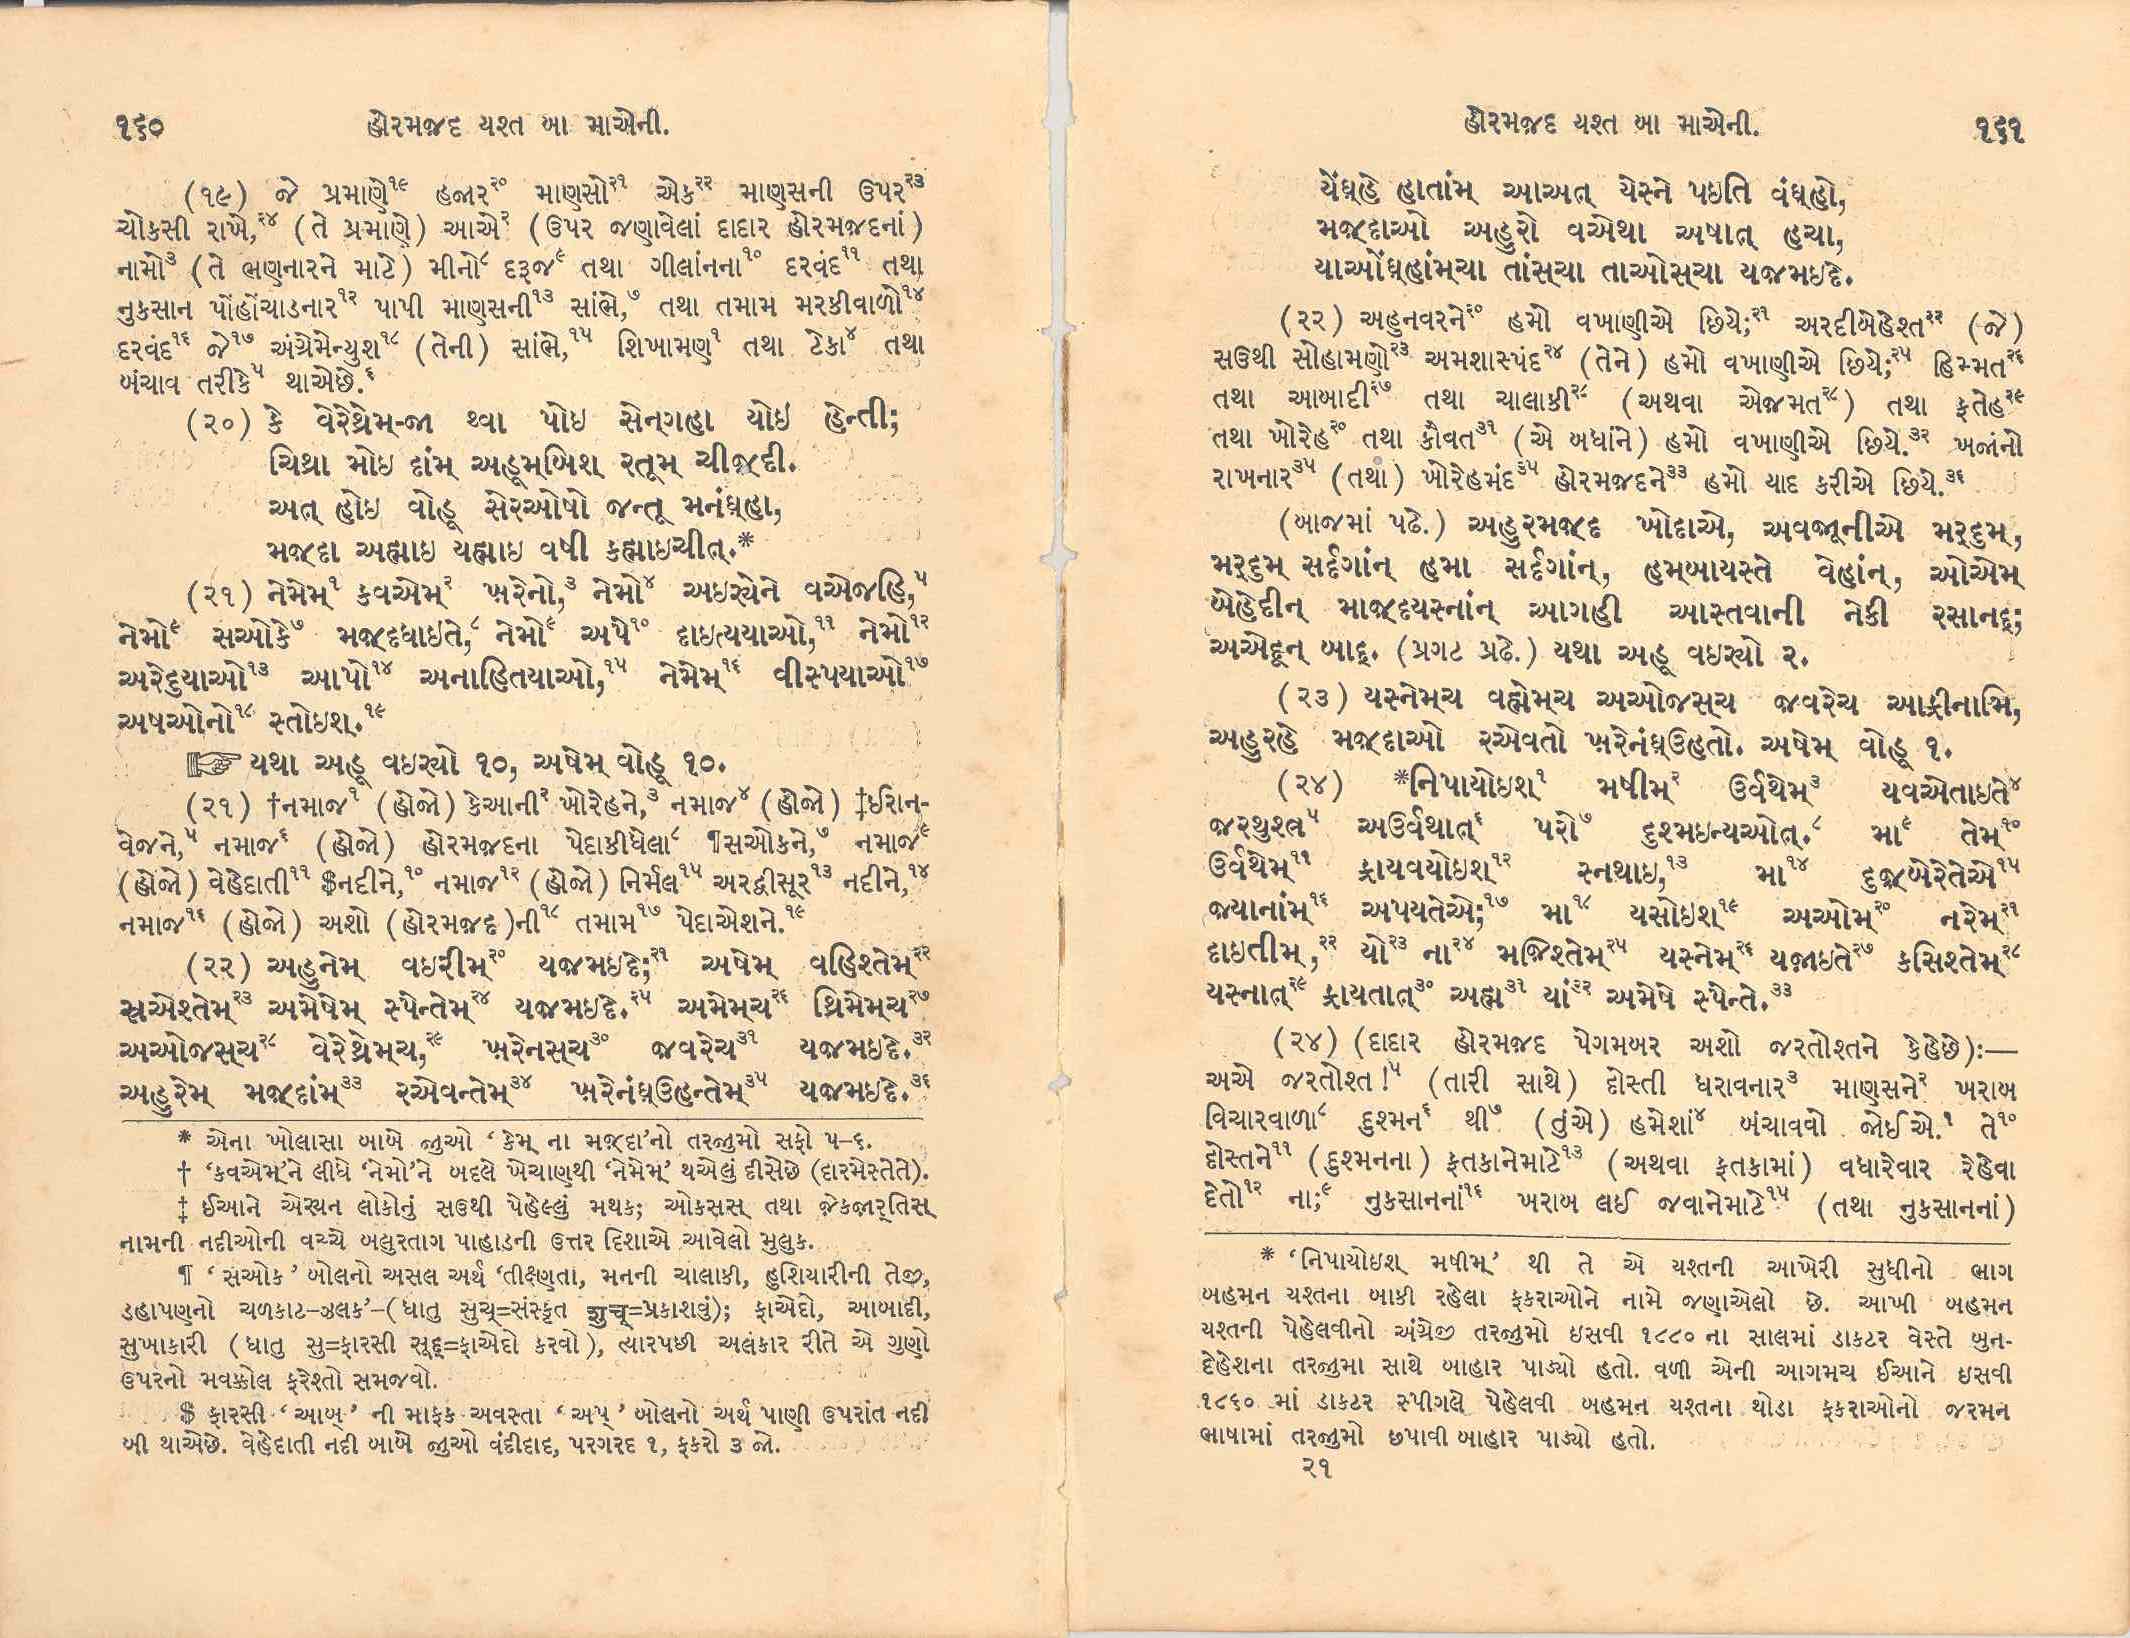 ૧૬૦ હોરમજ઼દ યશ્ત બા માએની.
(૧૯) જે પ્રમાણે૧૯ હજાર૨૦ માણસો૨૧ એક૨૨ માણસની ઉપર૨૩
ચોકસી રાખે,૨૪ (તે પ્રમાણે) આએ૨ (ઉપર જણાવેલાં દાદાર હોરમજ઼દનાં)
નામો૩ (તે ભણનારને માટે) મીનો૮ દરૂજ૯ તથા ગીલાંનના૧૦ દરવંદ૧૧ તથા
નુકસાન પોંહોંચાડનાર૧૨ પાપી માણસની૧૩ સાંભે,૭ તથા તમામ મરકીવાળો૧૪
દરવંદ૧૬ જે૧૭ અંગ્રેમૈન્યુશ૧૮ (તેની) સાંભે,૧૫ શિખામણ૧ તથા ટેકા૪ તથા
બંચાવ તરીકે૫ થાએછે.૬
(૨૦) કે વેરેથ્રેમ્-જા થ્વા પોઇ સેન્ગહા યોઇ હેન્તી;
ચિથ્રા મોઇ દાંમ્ અહૂમ્બિશ્ રતૂમ્ ચીજ઼્દી.
અત્ હોઇ વોહૂ સેરઓષો જન્તૂ મનંઘ્હા,
મજ઼્દા અહ્માઇ યહ્માઇ વષી કહ્માઇચીત્.*
(૨૧) નેમેમ્૧ કવએમ્૨ ખ઼રેનો,૩ નેમો૪ અઇર્યેને વએજહિ,૫
નેમો૬ સઓકે૭ મજ઼્દધાઇતે,૮ નેમો૯ અપે૧૦ દાઇત્યયાઓ,૧૧ નેમો૧૨
અરેદુયાઓ૧૩ આપો૧૪ અનાહિતયાઓ,૧૫ નેમેમ્૧૬ વીસ્પયાઓ૧૭
અષઓનો૧૮ સ્તોઇશ્.૧૯
☞ યથા અહૂ વઇર્યો ૧૦, અષેમ્ વોહૂ ૧૦.
(૨૧) †નમાજ૧ (હોજો) કેઆની૨ ખોરેહને,૩ નમાજ૪ (હોજો) ‡ઈરાન-
વેજને,૫ નમાજ૬ (હોજો) હોરમજ઼દના પેદાકીધેલા૮ ¶સઓકને,૭ નમાજ૯
(હોજો) વેહેદાતી૧૧ $નદીને,૧૦ નમાજ૧૨ (હોજો) નિર્મલ૧૫ અરદ્વીસૂર૧૩ નદીને,૧૪
નમાજ૧૬ (હોજો) અશો (હોરમજ઼દ)ની૧૮ તમામ૧૭ પેદાએશને.૧૯
(૨૨) અહુનેમ્ વઇરીમ્૨૦ યજ઼મઇદે;૨૧ અષેમ્ વહિશ્તેમ્૨૨
સ્રએશ્તેમ્૨૩ અમેષેમ્ સ્પેન્તેમ્૨૪ યજ઼મઇદે.૨૫ અમેમ્ચ૨૬ થ્રિમેમ્ચ૨૭
અઓજસ્ચ૨૮ વેરેથ્રેમ્ચ,૨૯ ખ઼રેનસ્ચ૩૦ જ઼વરેચ૩૧ યજ઼મઇદે.૩૨
અહુરેમ્ મજ઼્દાંમ્૩૩ રએવન્તેમ્૩૪ ખ઼રેનંઘ્ઉહન્તેમ્૩૫ યજ઼મઇદે.૩૬
* એના ખોલાસા બાબે જુઓ ‘કેમ્ ના મજ઼્દા’નો તરજુમો સફો ૫-૬.
† ‘કવએમ્’ને લીધે ‘નેમો’ને બદલે ખેચાણથી ‘નેમેમ્’ થએલું દીસેછે (દારમેસ્તેતે).
‡ ઈઆને એર્યન લોકોનું સઉથી પેહેલ્લું મથક; ઓકસસ્ તથા જે઼કજ઼ાર્તિસ્
નામની નદીઓની વચ્ચે બલુરતાગ પાહાડની ઉત્તર દિશાએ આવેલો મુલુક.
¶ ‘સઓક’ બોલનો અસલ અર્થ ‘તીક્ષ્ણતા, મનની ચાલાકી, હુશિયારીની તેજી,
ડહાપણનો ચળકાટ-ઝલક’-(ધાતુ સુચ્=સંસ્કૃત શુચ્=પ્રકાશવું); ફાએદો, આબાદી,
સુખાકારી (ધાતુ સુ=ફારસી સૂદ્=ફાએદો કરવો), ત્યારપછી અલંકાર રીતે એ ગુણો
ઉપરનો મવક્કોલ ફરેશ્તો સમજવો.
$ ફારસી ‘આબ્’ ની માફક અવસ્તા ‘અપ્’ બોલનો અર્થ પાણી ઉપરાંત નદી
બી થાએછે. વેહેદાતી નદી બાબે જુઓ વંદીદાદ, પરગરદ ૧, ફકરો ૩ જો.
હોરમજ઼દ યશ્ત બા માએની. ૧૬૧
યેંઘ્હે હાતાંમ્ આઅત્ યેસ્ને પઇતિ વંઘ્હો,
મજ઼્દાઓ અહુરો વએથા અષાત્ હચા,
યાઓંઘ્હાંમ્ચા તાંસ્ચા તાઓસ્ચા યજ઼મઇદે.
(૨૨) અહુનવરને૨૦ હમો વખાણીએ છિયે;૨૧ અરદીબેહેશ્ત૨૨ (જે)
સઉથી સોહામણો૨૩ અમશાસ્પંદ૨૪ (તેને) હમો વખાણીએ છિયે;૨૫ હિમ્મત૨૬
તથા આબાદી૨૭ તથા ચાલાકી૨૮ (અથવા એજમત૨૮) તથા ફતેહ૨૯
તથા ખોરેહ૩૦ તથા કૌવત૩૧ (એ બધાંને) હમો વખાણીએ છિયે.૩૨ ખજાંનો
રાખનાર૩૫ (તથા) ખોરેહમંદ૩૫ હોરમજ઼દને૩૩ હમો યાદ કરીએ છિયે.૩૬
(બાજમાં પઢે.) અહુરમજ઼્દ ખોદાએ, અવજ઼ૂનીએ મર્દુમ્,
મર્દુમ્ સર્દગાંન્ હમા સર્દગાંન્, હમ્બાયસ્તે વેહાંન્, ઓએમ્
બેહેદીન્ માજ઼્દયસ્નાંન્ આગહી આસ્તવાની નેકી રસાનદ્;
અએદૂન્ બાદ્. (પ્રગટ પ્રઢે.) યથા અહૂ વઇર્યો ૨.
(૨૩) યસ્નેમ્ચ વહ્મેમ્ચ અઓજસ્ચ જ઼વરેચ આફ્રીનામિ,
અહુરહે મજ઼્દાઓ રએવતો ખ઼રેનંઘ્ઉહતો. અષેમ્ વોહૂ ૧.
(૨૪) *નિપાયોઇશ્૧ મષીમ્૨ ઉર્વથેમ્૩ યવએતાઇતે૪
જ઼રથુશ્ત્ર૫ અઉર્વથાત્૬ પરો૭ દુશ્મઇન્યઓત્.૮ મા૯ તેમ્૧૦
ઉર્વથેમ્૧૧ ફ્રાયવયોઇશ્૧૨ સ્નથાઇ,૧૩ મા૧૪ દુજ઼્બેરેતેએ૧૫
જ઼યાનાંમ્૧૬ અપયતેએ;૧૭ મા૧૮ યસોઇશ્૧૯ અઓમ્૨૦ નરેમ્૨૧
દાઇતીમ્,૨૨ યો૨૩ ના૨૪ મજ઼િશ્તેમ્૨૫ યસ્નેમ્૨૬ યજ઼ાઇતે૨૭ કસિશ્તેમ્૨૮
યસ્નાત્૨૯ ફ્રાયતાત્૩૦ અહ્મ૩૧ યાં૩૨ અમેષે સ્પેન્તે.૩૩
(૨૪) (દાદાર હોરમજ઼દ પેગમબર અશો જરતોશ્તને કેહેછે):—
અએ જરતોશ્ત!૫ (તારી સાથે) દોસ્તી ધરાવનાર૩ માણસને૨ ખરાબ
વિચારવાળા૮ દુશ્મન૬ થી૭ (તુંએ) હમેશાં૪ બંચાવવો જોઈએ.૧ તે૧૦
દોસ્તને૧૧ (દુશ્મનના) ફતકાનેમાટે૧૩ (અથવા ફતકામાં) વધારેવાર રેહેવા
દેતો૧૨ ના;૯ નુકસાનનાં૧૬ ખરાબ લઈ જવાનેમાટે૧૫ (તથા નુકસાનનાં)
* ‘નિપાયોઇશ્ મષીમ્’ થી તે એ યશ્તની આખેરી સુધીનો ભાગ
બહમન યશ્તના બાકી રહેલા ફકરાઓને નામે જણાએલો છે. આખી બહમન
યશ્તની પેહેલવીનો અંગ્રેજી તરજુમો ઇસવી ૧૮૮૦ ના સાલમાં ડાકટર વેસ્તે બુન-
દેહેશના તરજુમા સાથે બાહાર પાડ્યો હતો. વળી એની આગમચ ઈઆને ઇસવી
૧૮૬૦ માં ડાકટર સ્પીગલે પેહેલવી બહમન યશ્તના થોડા ફકરાઓનો જરમન
ભાષામાં તરજુમો છપાવી બાહાર પાડ્યો હતો.
૨૧